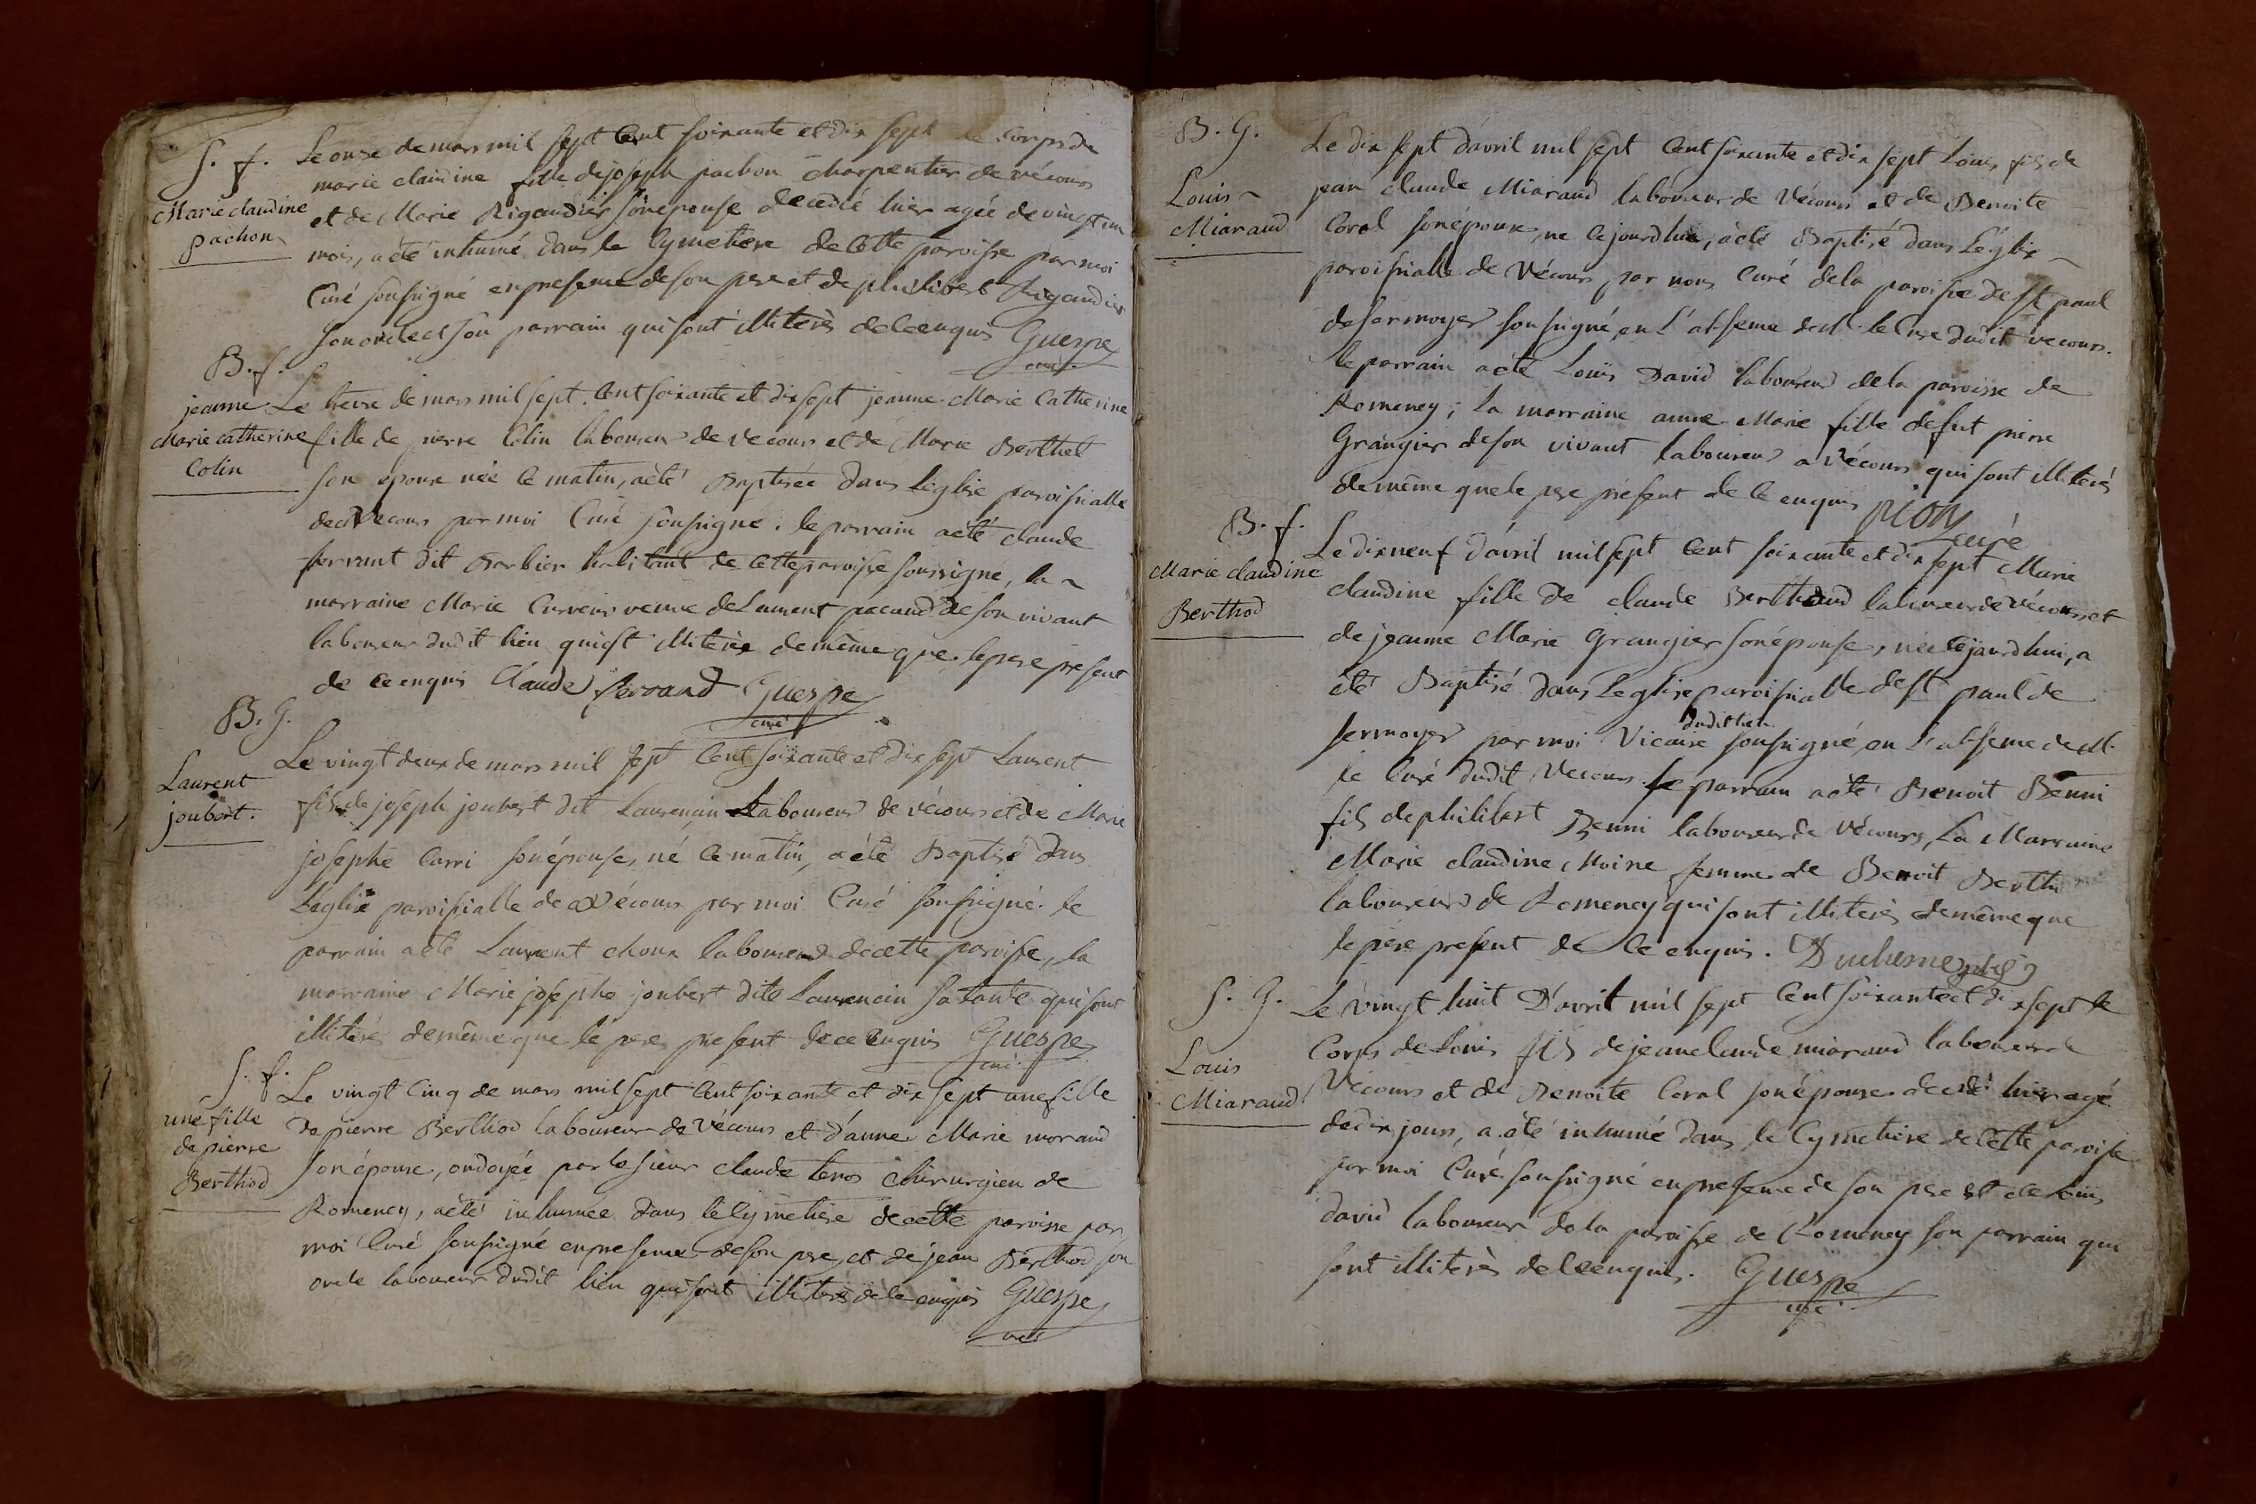 S. f.
Marie claudine
pachon
Le onze de mars mil sept Cent soixante et dix sept le Corps de
marie claudine fille de joseph pachon charpentier de vécours
et de Marie Rigaudier son épouse decedée hier agée de vingt un
mois, a été inhumé dans le Cymetiere de Cette paroisse par moi
Curé soussigné en presence de son pere et de philibert Rigaudier
son oncle et son parrain qui sont illiterés de ce enquis Guespe
curé
B. f.
jeanne
Marie catherine
Colin
Le treize de mars mil sept Cent soixante et dix sept jeanne Marie Catherine
fille de pierre Colin laboureur de vecours et de Marie Berthet
son epouse née ce matin, a été Baptisée dans l'eglise paroissialle
de vecours par moi Curé soussigné. le parrain a été claude
ferrant dit Barbier habitant de Cette paroisse soussigné, la
marraine Marie Curveur veuve de Laurent pacaud de son vivant
laboureur dudit lieu qui est illiterée de même que le pere present
de ce enquis Claude ferrand Guespe
curé
B. G.
Laurent
joubert.
Le vingt deux de mars mil sept Cent soixante et dix sept Laurent
fils de joseph joubert dit Laurencin Laboureur de vécours et de Marie
josephe Carri son épouse, né ce matin, a été Baptisé dans
L'eglise paroissialle de Vécours par moi Curé soussigné. le
parrain a été Laurent choux laboureur de cette paroisse, la
marraine Marie josephe joubert dite Laurencin sa tante qui sont
illiterés de même que le pere present de ce enquis Guespe
curé
S. f.
une fille
de pierre
Berthod
Le vingt Cinq de mars mil sept Cent soixante et dix sept une fille
de pierre Berthod laboureur de Vécours et d'anne Marie morand
son épouse, ondoyée par le sieur claude teros chirurgien de
Romenay, a été inhumée dans le Cymetiere de cette paroisse par
moi Curé soussigné en presence de son pere, et de jean Berthod son
oncle laboureur dudit lieu qui sont illiterés de ce enquis Guespe
curé
B. G.
Louis
Miaraud
Le dix sept d'avril mil sept Cent soixante et dix sept Louis, fils de
jean claude Miaraud laboureur de Vécours et de Benoite
Coral son épouse, né cejourdhui, a été Baptisé dans L'églize
paroissialle de Vécours par nous Curé de la paroisse de St paul
de sermoyer soussigné, en L'absence de M. le Curé dudit vecours.
le parrain a été Louis David laboureur de la paroisse de
Romeney; la marraine anne Marie fille de fut pierre
Grangier de son vivant laboureur a Vécours qui sont illiterés
de même que le pere présent de ce enquis pion
curé
B. f.
Marie claudine
Berthod
Le dix neuf d'avril mil sept Cent soixante et dix sept Marie
claudine fille de claude Berthaud laboureur de vécours et
de jeanne Marie Grangier son épouse, née cejourdhui, a
été Baptisé dans L'eglise paroissialle de St paul de
sermoyer par moi Vicaire dudit lieu soussigné, en L'absence de M.
le Curé dudit Vecours. Le parrain a été Benoit Benni
fils de philibert Benni laboureur de Vécours, La Marraine
Marie claudine Moine femme de Benoit Berth
laboureur de Romeney qui sont illiterés de même que
le pere present de ce enquis. Duchesne ptre
S. G.
Louis
Miaraud
Le vingt huit D'avril mil sept Cent soixante et dix sept le
Corps de Louis fils de jean claude miaraud laboureur de
Vécours et de Benoite Coral son épouse decedé hier agé
de dix jours, a été inhumé dans le Cymetiere de Cette paroisse
par moi Curé soussigné en presence de son pere et de Louis
david laboureur de la paroisse de Romeney son parrain qui
sont illiterés de ce enquis. Guespe
curé